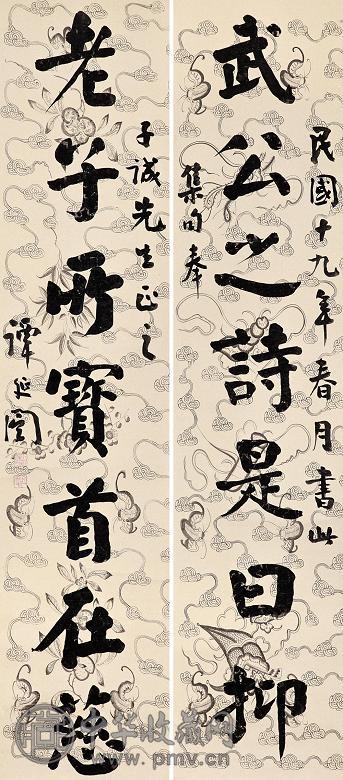 民國十九年春月書此
武公之詩是曰抑
集句奉
子誠先生正之
老子所寶首在慈
譚延闓
中华收藏网
www.pmv.cn